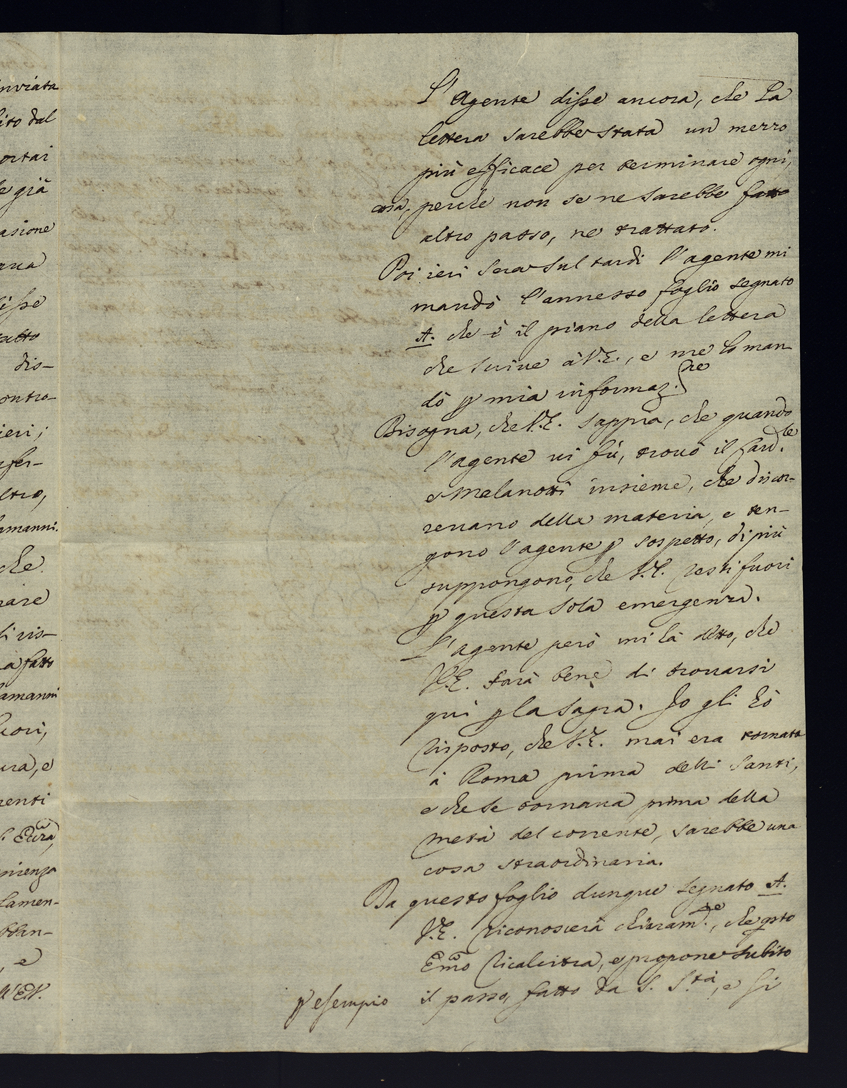 nviata
ito dal
ortai
le già
asione
aua
disse
fatto
dis-
ontra-
ieri;
nfer-
altro,
amanni.
che
nare
di ris-
a fatto
amanni
uori,
ura, e
menti
Lamen-
, e
L'Agente disse ancora, che la
lettera sarebbe stata un mezzo
più efficace per terminare ogni
cosa, perche non se ne sarebbe fatto
altro passo, ne trattato.
Poi ieri sera sul tardi l'agente mi
mandò l'annesso foglio segnato
A. che è il piano della lettera
che scrive à V.E., e me lo man-
dò p mia informaz.ne
Bisogna, che V.E. sappia, che quando
l'agente vi fù, trovò il Card.le
e Melanotti insieme, che discor-
reuano della materia, e ten-
gono l'agente p sospetto, di più
suppongono, che V.E. resti fuori
p questa sola emergenza.
L'agente però mi hà detto, che
V.E. farà bene di trouarsi
qui p la Sagra. Io gli hò
risposto, che V.E. mai era tornata
à Roma prima delli Santi,
e che se tornaua prima della
metà del corrente, sarebbe una
cosa straordinaria.
Da questo foglio dunque segnato A.
V.E. riconoscerà chiaram.te, che qsto
Emo ricalcitra, e propone subito
il passo, fatto da S. S.tà, e si
p esempio